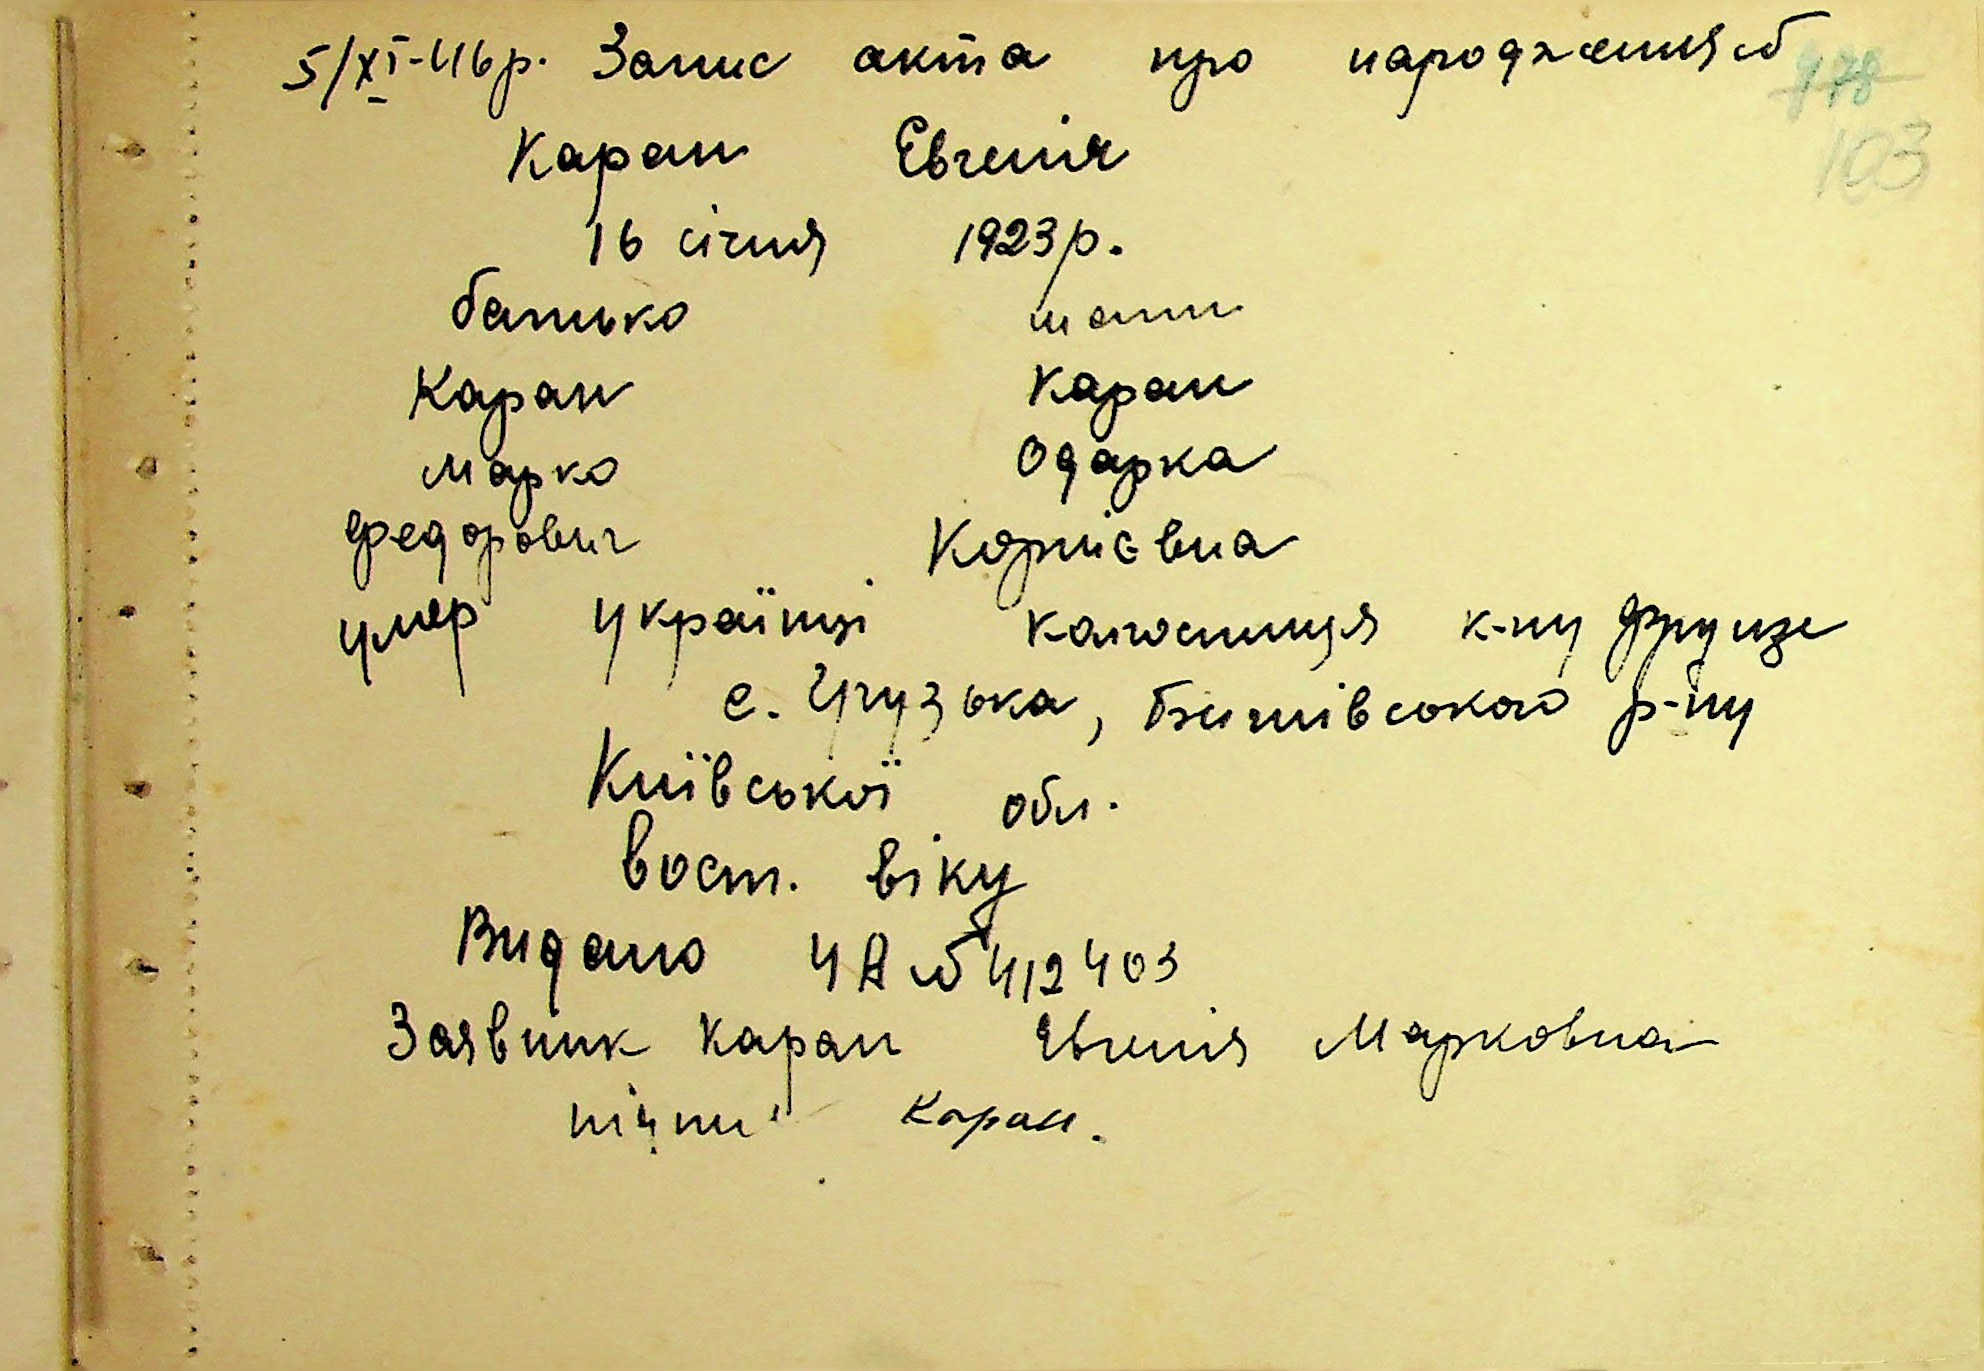 5/XI-46р. Запис акта про народження №
978
103
Каран Евгенія
16 січня 1923р.
батько мати
Каран Каран
Марко Одарка
Федорович Корнієвна
умер Українці колгоспниця к-пу Фрунзе
с. Грузька, Бишівського р-ну
Київської обл.
вост. віку
Видано УА № 412403
Заявник Каран Евгенія Марковна
Каран.